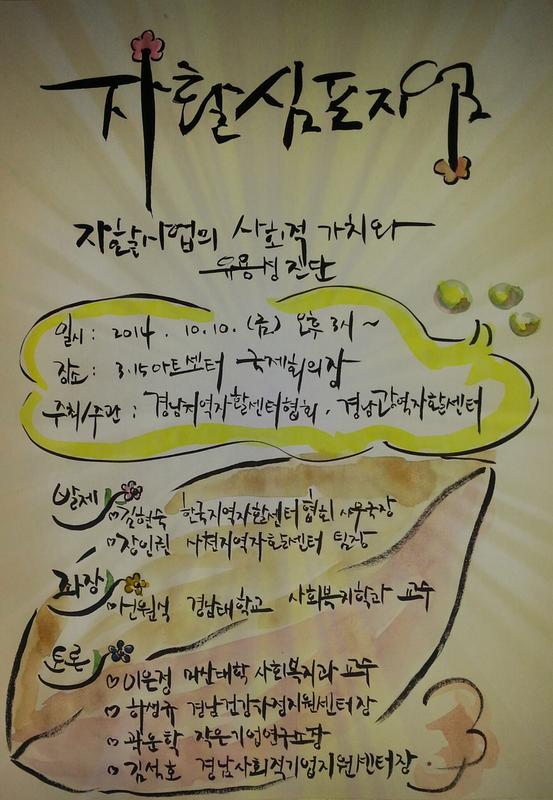 자활심포지엄
자활사업의 사회적 가치와
유용성 진단
일시 : 2014. 10.10.(금) 오후 3시~
장소 : 3.15아트센터 국제회의장
주최/주관 : 경남지역자활센터협회, 경남광역자활센터
발제
김현숙 한국지역자활센터협회 사무국장
장인권 사천지역자활센터 팀장
좌장
신원식 경남대학교 사회복지학과 교수
토론
이은정 마산대학 사회복지과 교수
하성규 경남건강가정지원센터장
곽운학 작은기업연구소장
김석호 경남사회적기업지원센터장